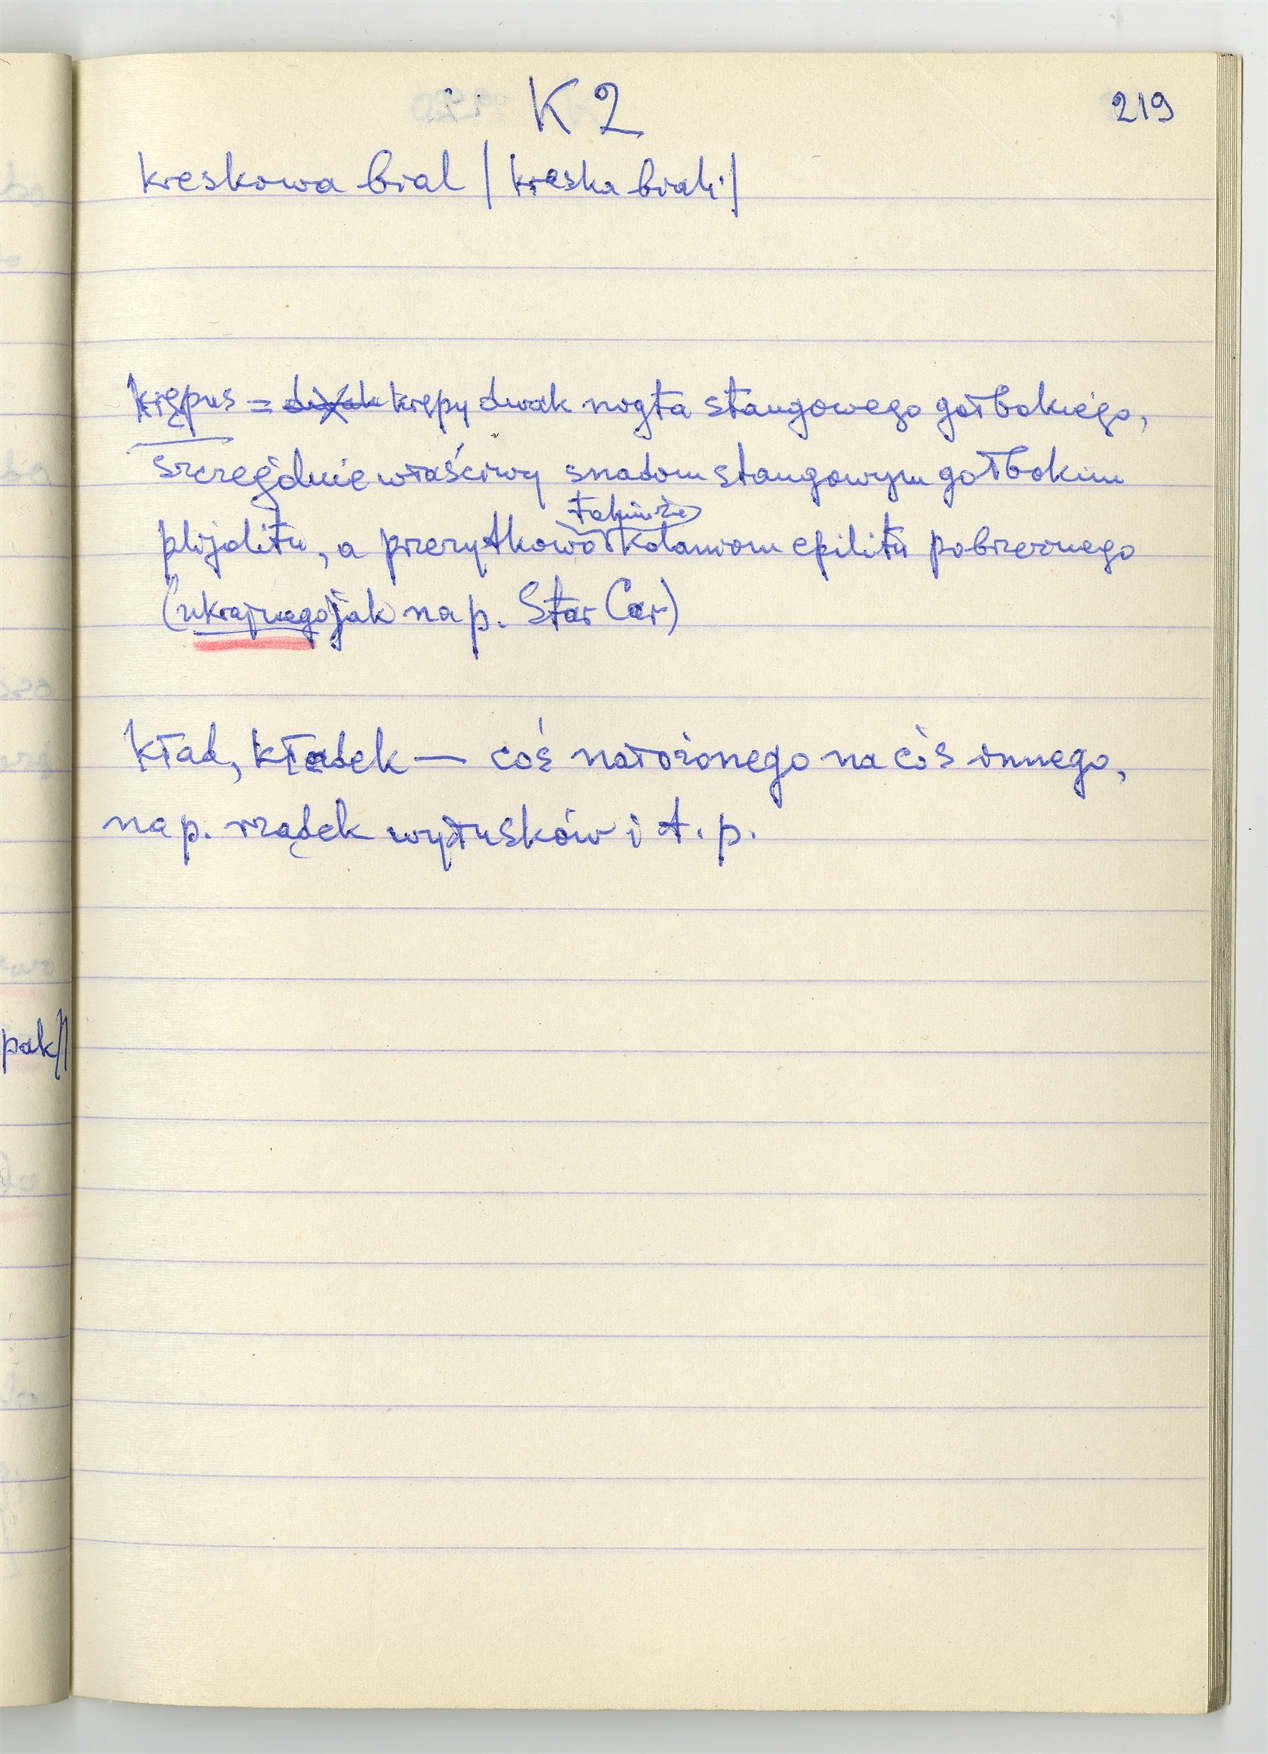 K2
219
kreskowa bial / kreska biali /
krępus = dwak krępy dwak nogta stangowego gołbokiego,
szczególnie właściwy snadom stangowym gołbokim
plijolitu, a przerytkowo także kolaniom epilitu pobrzeżnego
(ukrajnego jak nap. Star Car)
kład, kładek — coś nałożonego na coś innego,
nap. rządek wyłusków i t. p.
pak/